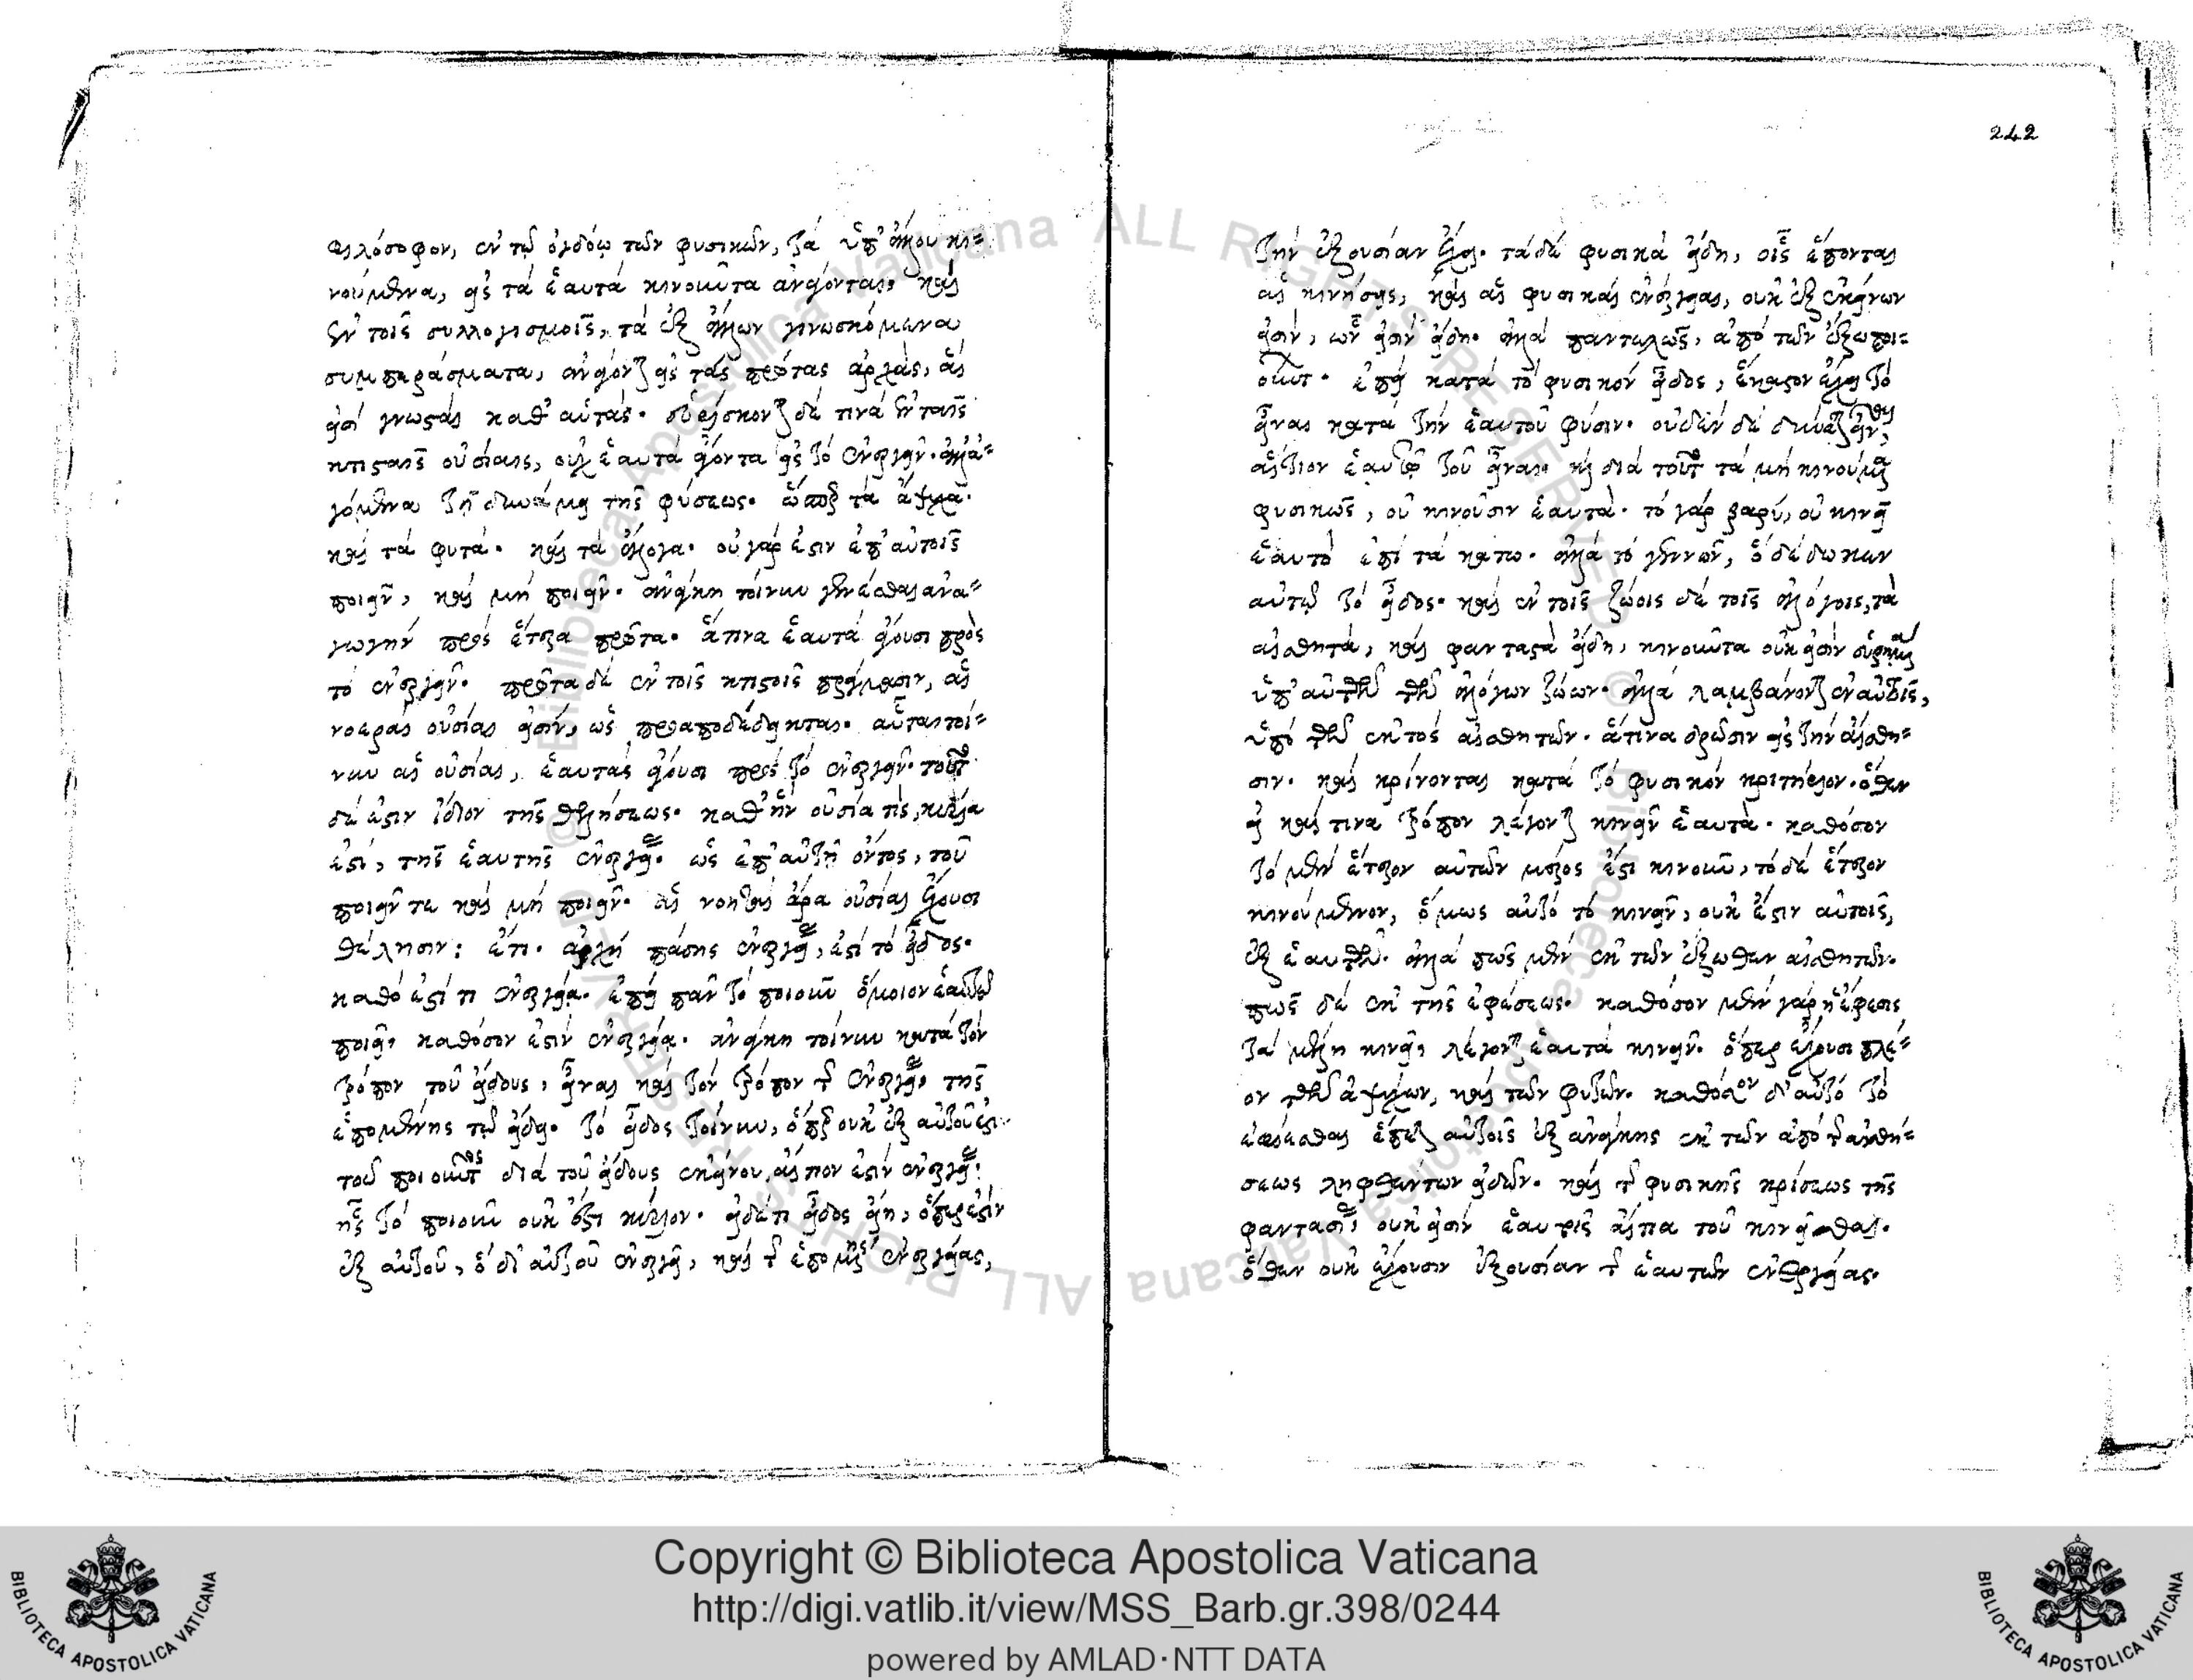 φιλόσοφον, ἐν τῷ ὀγδόῳ τῶν φυσικῶν, τὰ ὑπ' ἄλλου κι=
νούμενα, εἰς τὰ ἑαυτὰ κινοῦντα ἀνάγονται. καὶ
ἐν τοῖς συλλογισμοῖς, τὰ ἐξ ἄλλων γινωσκόμενα
συμπεράσματα, ἀνάγονται εἰς τὰς πρώτας ἀρχὰς, αἵ
εἰσι γνωσταὶ καθ' αὑτάς. εὑρίσκονται δὲ τινὰ ἐν ταῖς
κτισταῖς οὐσίαις, οὐχ ἑαυτὰ ἄγοντα εἰς τὸ ἐνεργεῖν. ἀλλ' ἀ=
γόμενα τῇ δυνάμει τῆς φύσεως. ὥσπερ τὰ ἄψυχα.
καὶ τὰ φυτά. καὶ τὰ ἄλογα. οὐ γάρ ἐστιν ἐπ' αὐτοῖς
ποιεῖν, καὶ μὴ ποιεῖν. ἀνάγκη τοίνυν γενέσθαι ἀνα=
γωγὴν πρὸς ἕτερα πρῶτα. ἅτινα ἑαυτὰ ἄγουσι πρὸς
τὸ ἐνεργεῖν. πρῶτα δὲ ἐν τοῖς κτιστοῖς πράγμασιν, αἱ
νοεραὶ οὐσίαι εἰσὶν, ὡς προαποδέδεικται. αὗται τοί=
νυν αἱ οὐσίαι, ἑαυτὰς ἄγουσι πρὸς τὸ ἐνεργεῖν. τοῦτο
δέ ἐστιν ἴδιον τῆς θελήσεως. καθ' ἣν οὐσία τις, κυρία
ἐστὶ, τῆς ἑαυτῆς ἐνεργείας. ὡς ἐπ' αὐτῇ ὄντος, τοῦ
ποιεῖν τε καὶ μὴ ποιεῖν. αἱ νοηταὶ ἄρα οὐσίαι ἔχουσι
θέλησιν: ἔτι. ἀρχὴ πάσης ἐνεργείας, ἐστὶ τὸ εἶδος.
καθό ἐστί τι ἐνεργείᾳ. ἐπεὶ πᾶν τὸ ποιοῦν ὅμοιον ἑαυτῷ
ποιεῖ, καθόσον ἐστὶν ἐνεργείᾳ. ἀνάγκη τοίνυν κατὰ τὸν
τρόπον τοῦ εἴδους, εἶναι καὶ τὸν τρόπον τῆς ἐνεργείας, τῆς
ἑπομένης τῷ εἴδει. τὸ εἶδος τοίνυν, ὅπερ οὐκ ἐξ αὐτοῦ ἐστι
τοῦ ποιοῦντος διὰ τοῦ εἴδους ἐκείνου, αἴτιον ἐστὶν ἐνεργείας,
ἧς τὸ ποιοῦν οὐκ ἔστι κύριον. εἰ δέ τι εἶδος εἴη, ὅπερ ἐστὶν
ἐξ αὐτοῦ, ὃ δι' αὐτοῦ ἐνεργεῖ, καὶ τῆς ἑπομένης ἐνεργείας,
242
τὴν ἐξουσίαν ἔχει. τὰ δὲ φυσικὰ εἴδη, οἷς ἕπονται
αἱ κινήσεις, καὶ αἱ φυσικαὶ ἐνέργειαι, οὐκ ἐξ ἐκείνων
εἰσὶν, ὧν εἰσὶν εἴδη. ἀλλὰ παντελῶς, ἀπὸ τῶν ἔξω ποι=
ούντων. ἐπεὶ κατὰ τὸ φυσικὸν εἶδος, ἕκαστον ἔχει τὸ
εἶναι κατὰ τὴν ἑαυτοῦ φύσιν. οὐδὲν δὲ δύναται εἶναι,
αἴτιον ἑαυτῷ τοῦ εἶναι. καὶ διὰ τοῦτο τὰ μὴ κινούμενα
φυσικῶς, οὐ κινοῦσιν ἑαυτά. τὸ γὰρ βαρὺ, οὐ κινεῖ
ἑαυτὸ ἐπὶ τὰ κάτω. ἀλλὰ τὸ γεννῶν, ὃ δέδωκεν
αὐτῷ τὸ εἶδος. καὶ ἐν τοῖς ζώοις δὲ τοῖς ἀλόγοις, τὰ
αἰσθητὰ, καὶ φανταστὰ εἴδη, κινοῦντα οὐκ εἰσὶν εὑρημένα
ὑπ' αὐτῶν τῶν ἀλόγων ζώων. ἀλλὰ λαμβάνονται ἐν αὐτοῖς,
ὑπὸ τῶν ἐκτὸς αἰσθητῶν. ἅτινα δρῶσιν εἰς τὴν αἴσθη=
σιν. καὶ κρίνονται κατὰ τὸ φυσικὸν κριτήριον. ὅθεν
εἰ καί τινα τρόπον λέγονται κινεῖν ἑαυτά. καθόσον
τὸ μὲν ἕτερον αὐτῶν μέρος ἐστὶ κινοῦν, τὸ δὲ ἕτερον
κινούμενον, ὅμως αὐτὸ τὸ κινεῖν, οὐκ ἔστιν αὐτοῖς,
ἐξ ἑαυτῶν. ἀλλά πως μὲν ἐκ τῶν ἔξωθεν αἰσθητῶν.
πῶς δὲ ἐκ τῆς ἐφέσεως. καθόσον μὲν γὰρ ἡ ἔφεσις
τὰ μέλη κινεῖ, λέγονται ἑαυτὰ κινεῖν. ὅπερ ἔχουσι πλέ=
ον τῶν ἀψύχων, καὶ τῶν φυτῶν. καθόσον δ' αὐτὸ τὸ
ἐφίεσθαι ἕπεται αὐτοῖς ἐξ ἀνάγκης ἐκ τῶν ἀπὸ τῆς αἰσθή=
σεως ληφθέντων εἰδῶν. καὶ τῆς φυσικῆς κρίσεως τῆς
φαντασίας, οὐκ εἰσὶν ἑαυτοῖς αἴτια τοῦ κινεῖσθαι.
ὅθεν οὐκ ἔχουσιν ἐξουσίαν τῆς ἑαυτῶν ἐνεργείας.
Copyright © Biblioteca Apostolica Vaticana
http://digi.vatlib.it/view/MSS_Barb.gr.398/0244
powered by AMLAD·NTT DATA
BIBLIOTECA APOSTOLICA VATICANA
BIBLIOTECA APOSTOLICA VATICANA